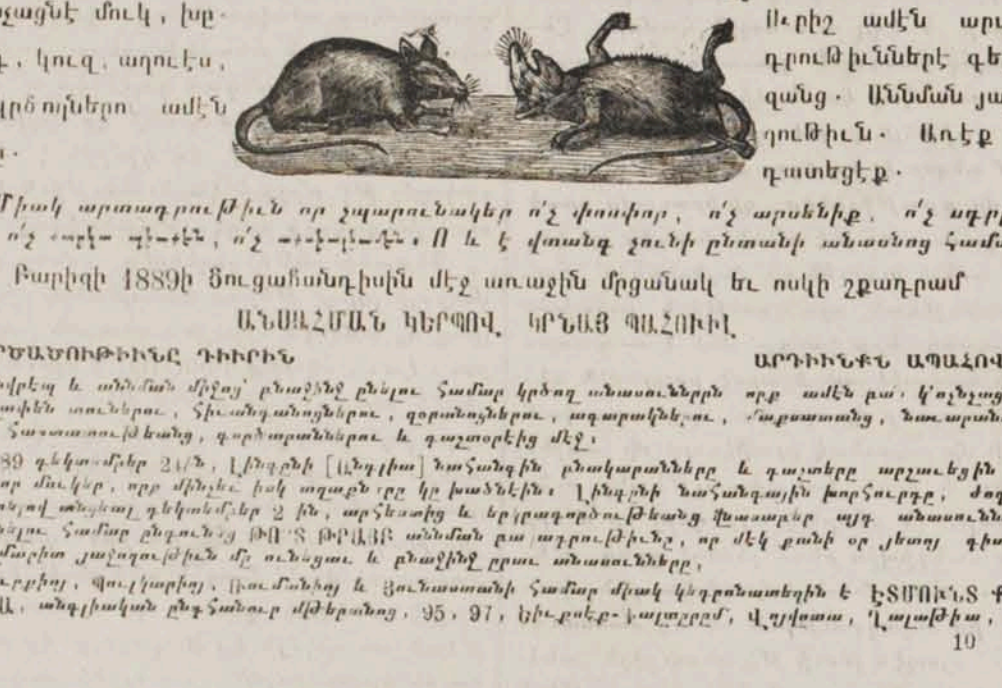 չացնէ մուկ, խը-
կուզ, աղուէս,
կրծողներո ամէն
Ուրիշ ամէն
դրութիւններէ գե-
զանց. Աննման յա-
ղութիւն. Առէք
դատեցէք.
Միակ արտադրութիւն որ չպարունակեր ո՛չ փոսփոր, ո՛չ արսենիք, ո՛չ
ո՛չ վտանգ չունի ընտանի անասնոց համար
Բարիզի 1889ի Ցուցահանդիսին մէջ առաջին մրցանակ եւ ոսկի շքադրամ
ԱՆՍԱՀՄԱՆ ԿԵՐՊՈՎ ԿՐՆԱՅ ՊԱՀՈՒԻԼ
ԾԱԾՈՒԹԻՒՆԸ ԴԻՒՐԻՆ
ԱՐԴԻՒՆՔՆ ԱՊԱՀՈՎ
և աննման միջոց՝ բնաջինջ ընելու համար կրծող անասուններն որք ամէն
տուներու, հիւանդանոցներու, զօրանոցներու, ագարակներու,
գործարաններու և դաշտօրէից մէջ։
89 դեկտեմբեր 24/ն, Լինքընի [Անգլիա] նահանգին բնակարանները և դաշտերը արշաւեցին
մուկեր, որք մինչեւ իսկ տղաքները կը խածնէին։ Լինքընի նահանգային խորհուրդը,
դեկտեմբեր 2 ին, արհեստից և երկրագործութեանց վնասարեր այդ անասուններ
համար ընդունեց աննման բաղադրութիւնը, որ մէկ քանի օր յետոյ
յաջողութիւն մը ունեցաւ և բնաջինջ ըրաւ անասունները։
Պուլկարիոյ, Ռումանիոյ և Յունաստանի համար միակ կեդրոնատեղին է ԷՏՄՈՆՏ
անգլիական ընդհանուր մթերանոց, 95, 97, Եիւքսէք-Կալտըրըմ, Վոյվոտա, Ղալաթիա,
10